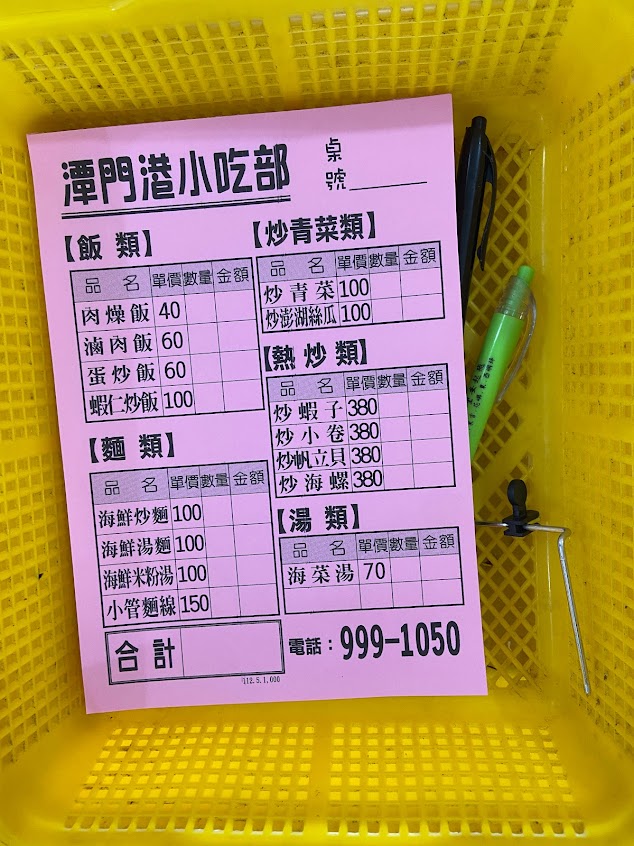 潭門港小吃部
桌
號
【飯 類】
品 名 單價 數量 金額
肉燥飯 40
滷肉飯 60
蛋炒飯 60
蝦仁炒飯 100
【麵 類】
品 名 單價 數量 金額
海鮮炒麵 100
海鮮湯麵 100
海鮮米粉湯 100
小管麵線 150
合計
【炒青菜類】
品 名 單價 數量 金額
炒青菜 100
炒澎湖絲瓜 100
【熱炒類】
品 名 單價 數量 金額
炒蝦子 380
炒小卷 380
炒帆立貝 380
炒海螺 380
【湯 類】
品 名 單價 數量 金額
海菜湯 70
電話：999-1050
112.5.1,000